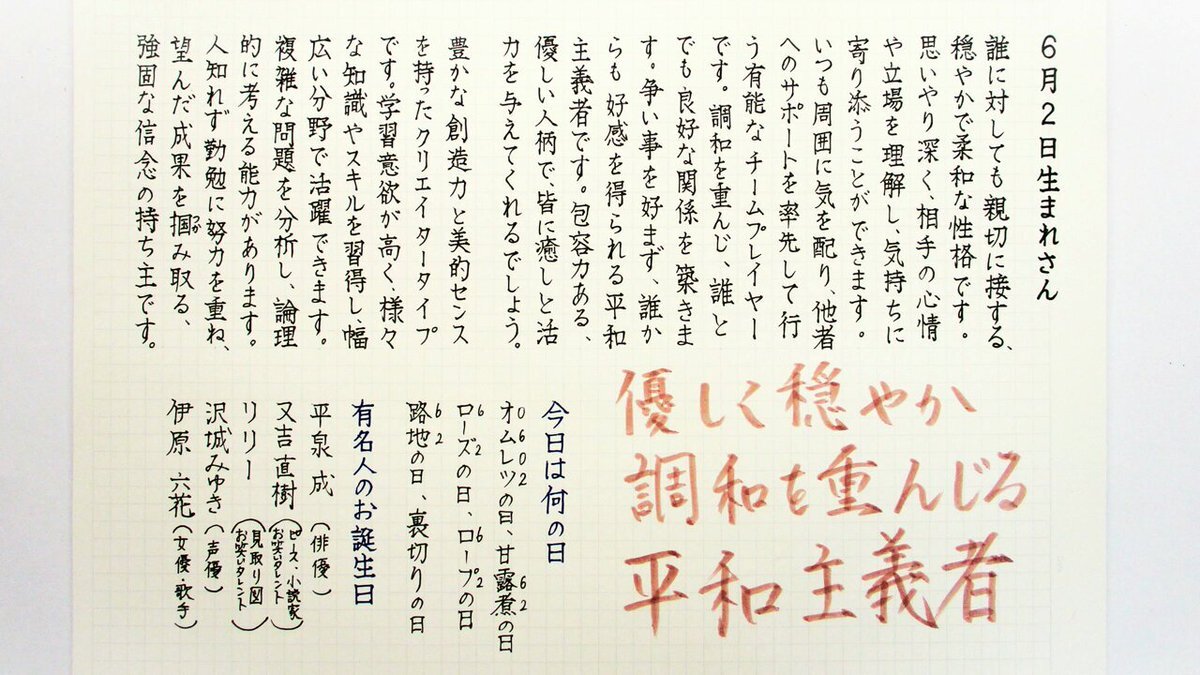 6月2日生まれさん
誰に対しても親切に接する、
穏やかで柔和な性格です。
思いやり深く、相手の心情
や立場を理解し、気持ちに
寄り添うことができます。
いつも周囲に気を配り、他者
へのサポートを率先して行
う有能なチームプレイヤー
です。調和を重んじ、誰と
でも良好な関係を築きま
す。争い事を好まず、誰か
らも好感を得られる平和
主義者です。包容力ある、
優しい人柄で、皆に癒しと活
力を与えてくれるでしょう。
豊かな創造力と美的センス
を持ったクリエイタータイプ
です。学習意欲が高く、様々
な知識やスキルを習得し、幅
広い分野で活躍できます。
複雑な問題を分析し、論理
的に考える能力があります。
人知れず勤勉に努力を重ね、
望んだ成果を掴み取る、
つか
強固な信念の持ち主です。
優しく穏やか
調和を重んじる
平和主義者
今日は何の日
0602 62
オムレツの日、甘露煮の日
62 62
ローズの日、ロープの日
62
路地の日、裏切りの日
有名人のお誕生日
平泉 成 (俳優)
又吉直樹 (ピース、小説家 お笑いタレント)
リリー (見取り図 お笑いタレント)
沢城みゆき (声優)
伊原 六花 (女優・歌手)